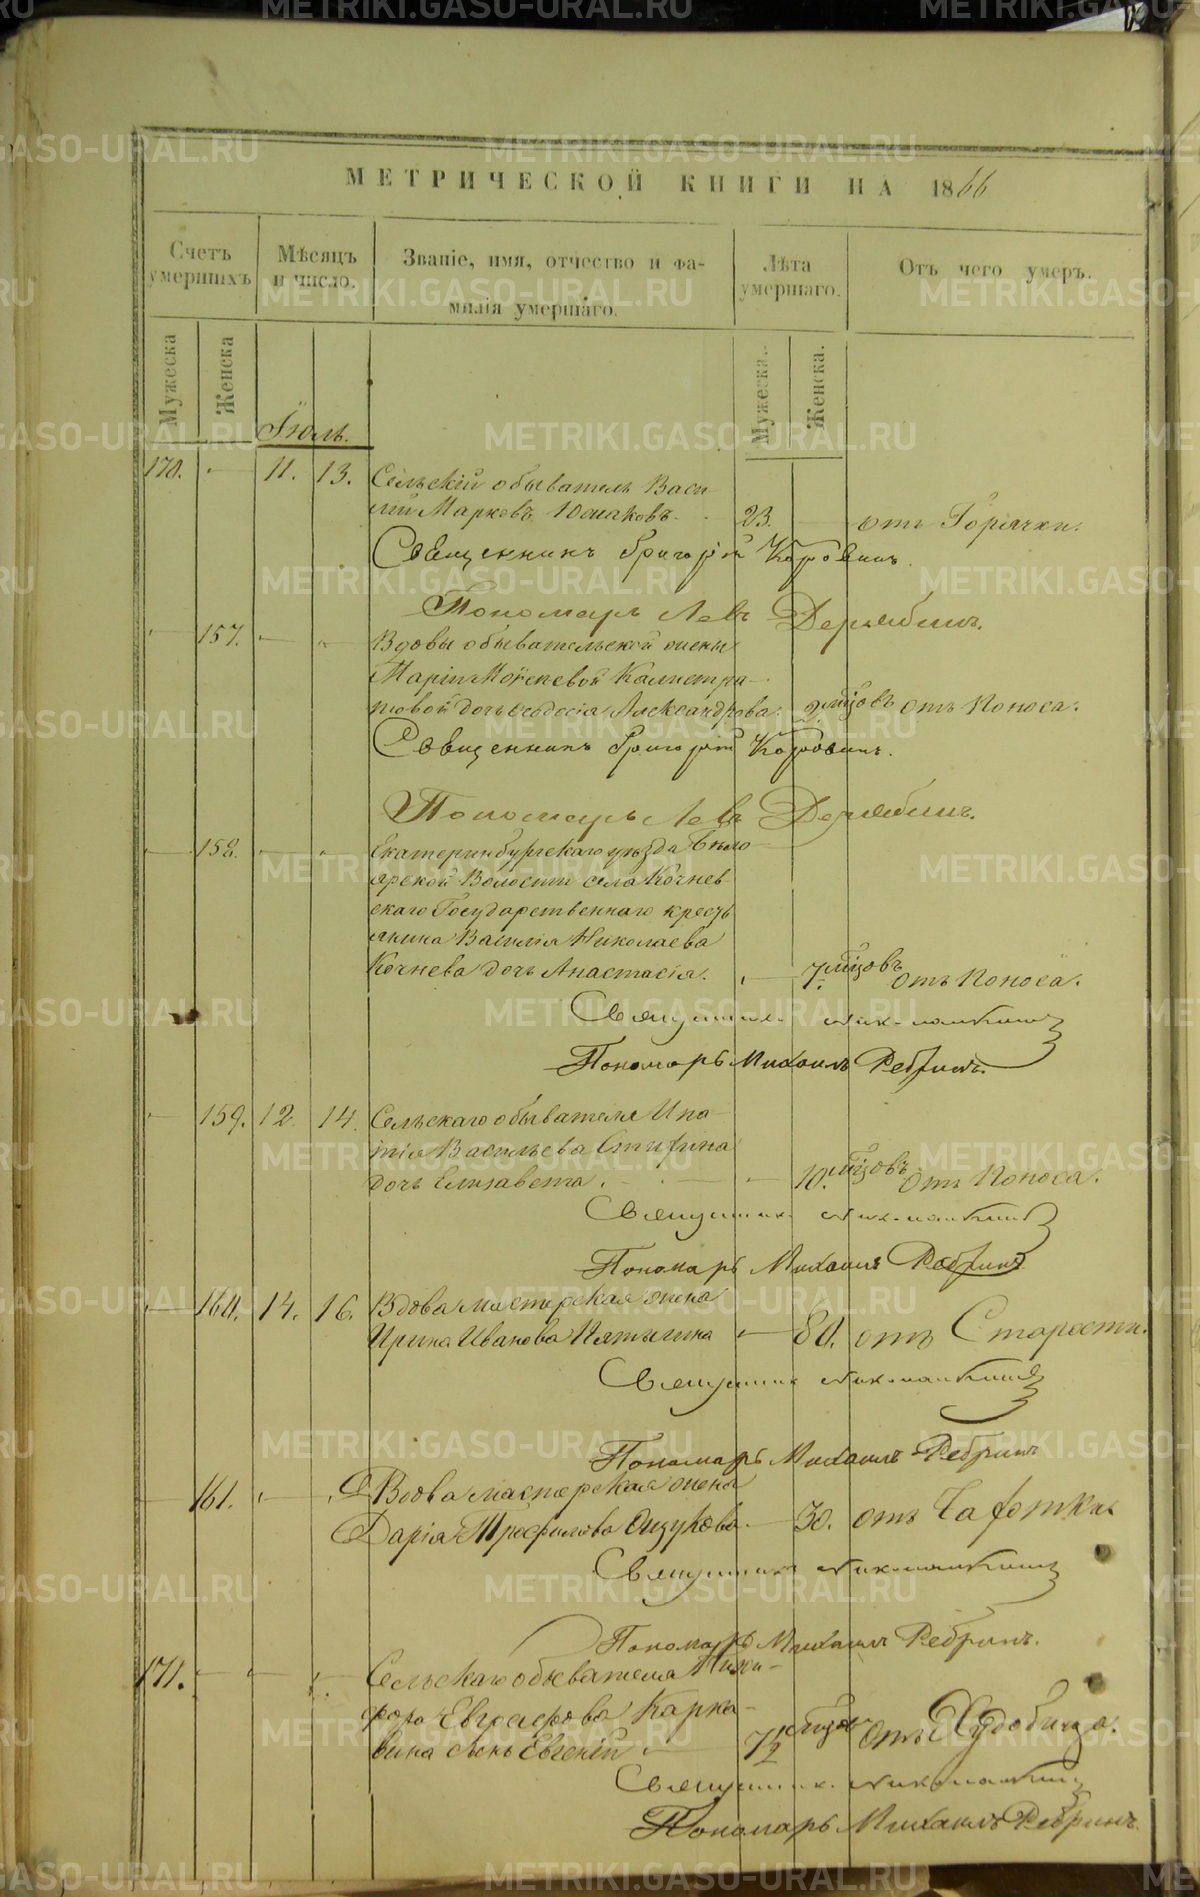 МЕТРИЧЕСКОЙ КНИГИ НА 1866
Счетъ умершихъ
Мѣсяцъ и число.
Званіе, имя, отчество и фамилія умершаго.
Лѣта умершаго.
Отъ чего умеръ.
Мужеска
Женска
Мужеска.
Женска.
Іюль.
170. 11. 13. Сельскій обыватель Васи-
лій Марковъ Юшаковъ. 23. отъ Горячки.
Священникъ Григорій Коровинъ.
Пономарь Левъ Дерябинъ.
157. Вдовы обывательской жены
Маріи Моисеевой Калистра-
товой дочь Ѳеодосія Александрова. 2 мѣсяцовъ отъ Поноса.
Священникъ Григорій Коровинъ.
Пономарь Левъ Дерябинъ.
158. Екатеринбургскаго уѣзда Бѣло-
ярской Волости села Кочнев-
скаго Государственнаго кресть-
янина Василія Николаева
Кочнева дочь Анастасія. 7. мѣсяцовъ отъ Поноса.
Священникъ
Пономарь Михаилъ Ребринъ.
159. 12. 14. Сельскаго обывателя Ипа-
тія Васильева
дочь Елизавета. 10. мѣсяцовъ отъ Поноса.
Священникъ
Пономарь Михаилъ Ребринъ
160. 14. 16. Вдова мастерская жена
Ирина Иванова Пятыгина 80. отъ Старости.
Священникъ
Пономарь Михаилъ Ребринъ
161. Вдова мастерская жена
Дарія Трефилова 30. отъ Чахотки.
Священникъ
Пономарь Михаилъ Ребринъ.
171. Сельскаго обывателя Ники-
фора Евграфова Карка-
вина сынъ Евгеній 7½ мѣсяцовъ отъ
Священникъ
Пономарь Михаилъ Ребринъ.
METRIKI.GASO-URAL.RU